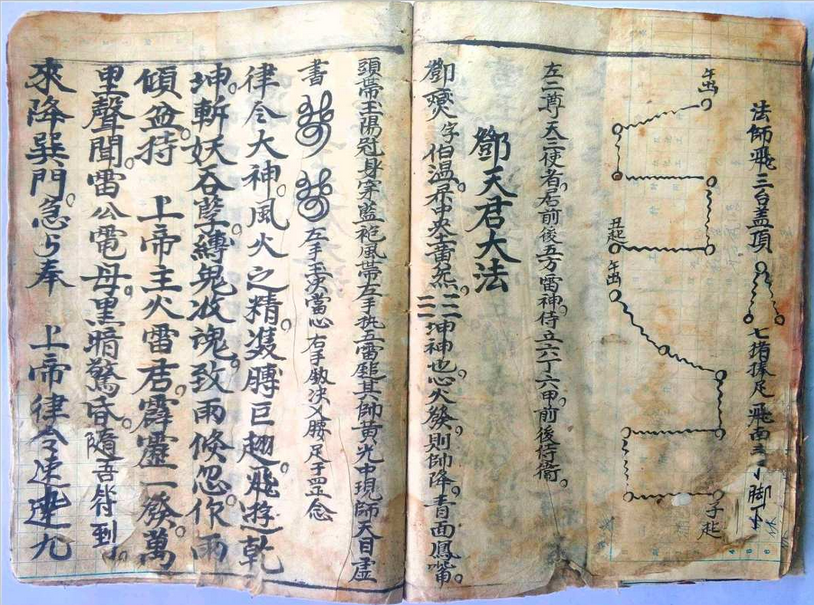 法師飛三台盖頂
七
捧足飛南斗
脚下
午出
丑起
午出
子起
左二尊天三使者居前後五方雷神侍立六丁六甲前後侍衛
鄧天君大法
鄧燮字伯温
坤神也心火發則帥降青面鳳嘴
頭帶玉陽冠身穿藍袍風帶左手執五雷鎚其帥黄光中現師天目虚
書
左手玉决當心右手劍决乂腰足子罡念
律令大神風火之精雙膊巨翅飛遊乾
坤斬妖吞孽縛鬼收魂致雨倐忽作雨
傾盆持 上帝主火雷君霹靂一發萬
里聲聞雷公電母黒暗驚昏隨吾符到
來降巽門急急奉 上帝律令速速九